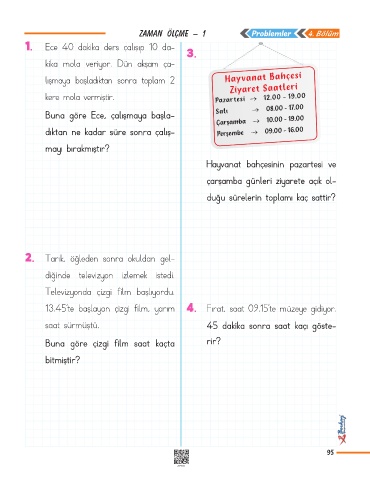 ZAMAN ÖLÇME - 1
Problemler
4. Bölüm
1. Ece 40 dakika ders çalışıp 10 da-
kika mola veriyor. Dün akşam ça-
lışmaya başladıktan sonra toplam 2
kere mola vermiştir.
Buna göre Ece, çalışmaya başla-
dıktan ne kadar süre sonra çalış-
mayı bırakmıştır?
2. Tarık, öğleden sonra okuldan gel-
diğinde televizyon izlemek istedi.
Televizyonda çizgi film başlıyordu.
13.45'te başlayan çizgi film, yarım
saat sürmüştü.
Buna göre çizgi film saat kaçta
bitmiştir?
3.
Hayvanat Bahçesi
Ziyaret Saatleri
Pazartesi → 12.00 - 19.00
Salı → 08.00 - 17.00
Çarşamba → 10.00 - 19.00
Perşembe → 09.00 - 16.00
Hayvanat bahçesinin pazartesi ve
çarşamba günleri ziyarete açık ol-
duğu sürelerin toplamı kaç saattir?
4. Fırat, saat 09.15'te müzeye gidiyor.
45 dakika sonra saat kaçı göste-
rir?
95